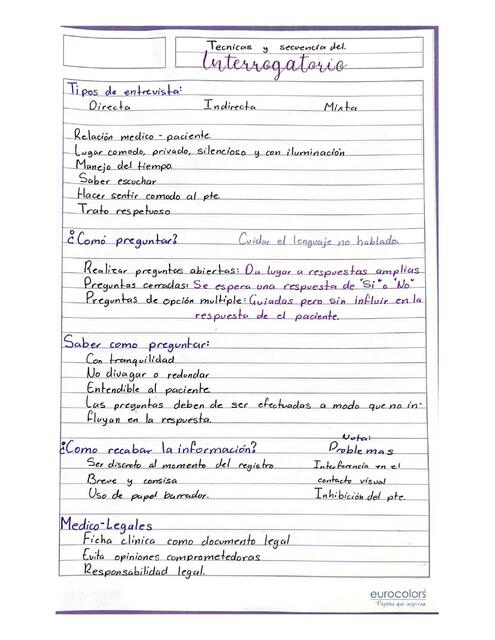 Tecnicas y secuencia del.
Interrogatorio
Tipos de entrevista:
Directa Indirecta Mixta
Relación medico - paciente
Lugar comodo, privado, silencioso y con iluminación
Manejo del tiempo
Saber escuchar
Hacer sentir comodo al pte.
Trato respetuoso
¿Comó preguntar? Cuidar el lenguaje no hablado
Realizar preguntas abiertas: Da lugar a respuestas amplias
Preguntas cerradas: Se espera una respuesta de "Si" o "No"
Preguntas de opción multiple: Guiadas pero sin influir en la
respuesta de el paciente.
Saber como preguntar:
Con tranquilidad
No divagar o redundar
Entendible al paciente
Las preguntas deben de ser efectuadas a modo que no in-
fluyan en la respuesta.
¿Como recabar la información?
Ser discreto al momento del registro
Breve y consisa
Uso de papel borrador.
Nota:
Problemas
Interferencia en el
contacto visual
Inhibición del pte.
Medico-Legales
Ficha clinica como documento legal
Evita opiniones comprometedoras
Responsabilidad legal.
eurocolors
Papeles que inspiran